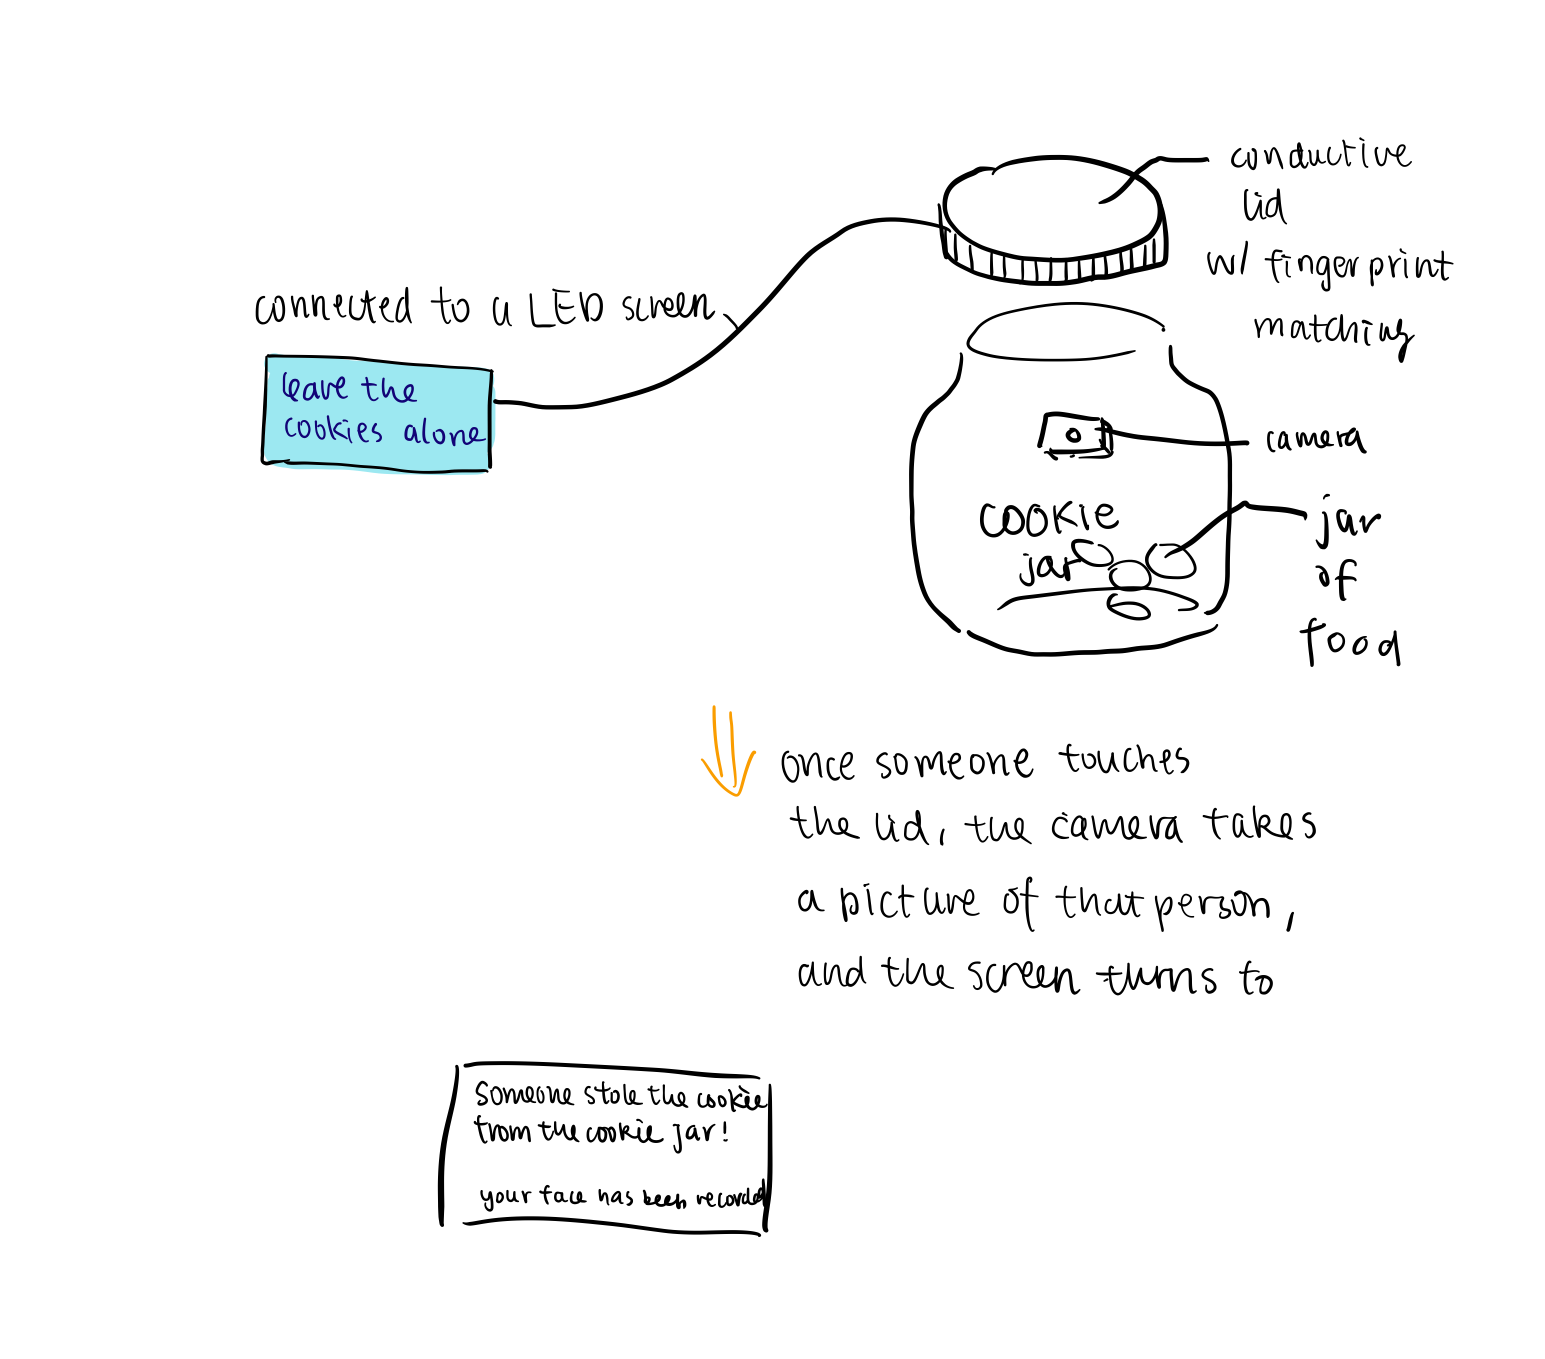 conductive
lid
w/ fingerprint
matching
connected to a LED screen
leave the
cookies alone
camera
cookie
jar
jar
of
food
once someone touches
the lid, the camera takes
a picture of that person,
and the screen turns to
Someone stole the cookie
from the cookie jar!
your face has been recorded